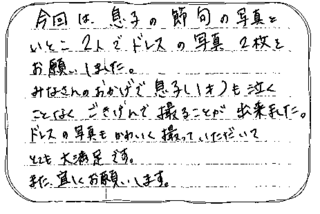 今回は、息子の節句の写真と
いとこ2人でドレスの写真2枚を
お願いしました。
みなさんのおかげで息子(1才)も泣く
ことなくごきげんで撮ることが出来ました。
ドレスの写真もかわいく撮っていただいて
とても大満足です。
また、宜しくお願いします。